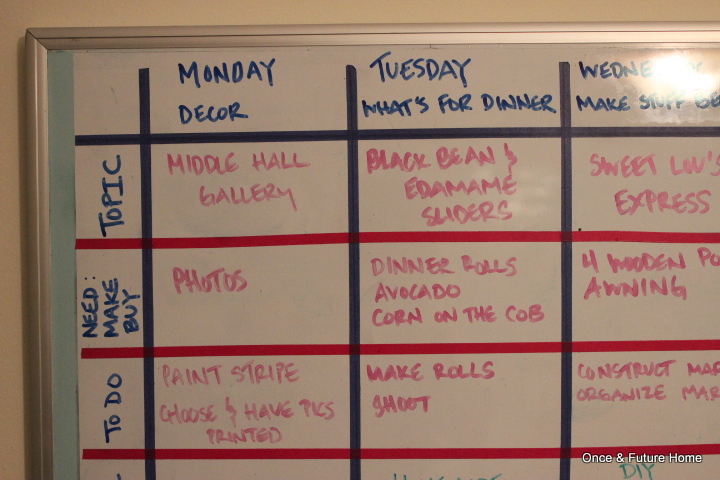 MONDAY
DECOR
TUESDAY
WHAT'S FOR DINNER
MAKE STUFF
TOPIC
MIDDLE HALL
GALLERY
BLACK BEAN &
EDAMAME
SLIDERS
SWEET LOU'S
EXPRESS
NEED:
MAKE
BUY
PHOTOS
DINNER ROLLS
AVOCADO
CORN ON THE COB
4 WOODEN
AWNING
TO DO
PAINT STRIPE
CHOOSE & HAVE PICS
PRINTED
MAKE ROLLS
SHOOT
CONSTRUCT MAR
ORGANIZE MAR
DIY
Once & Future Home